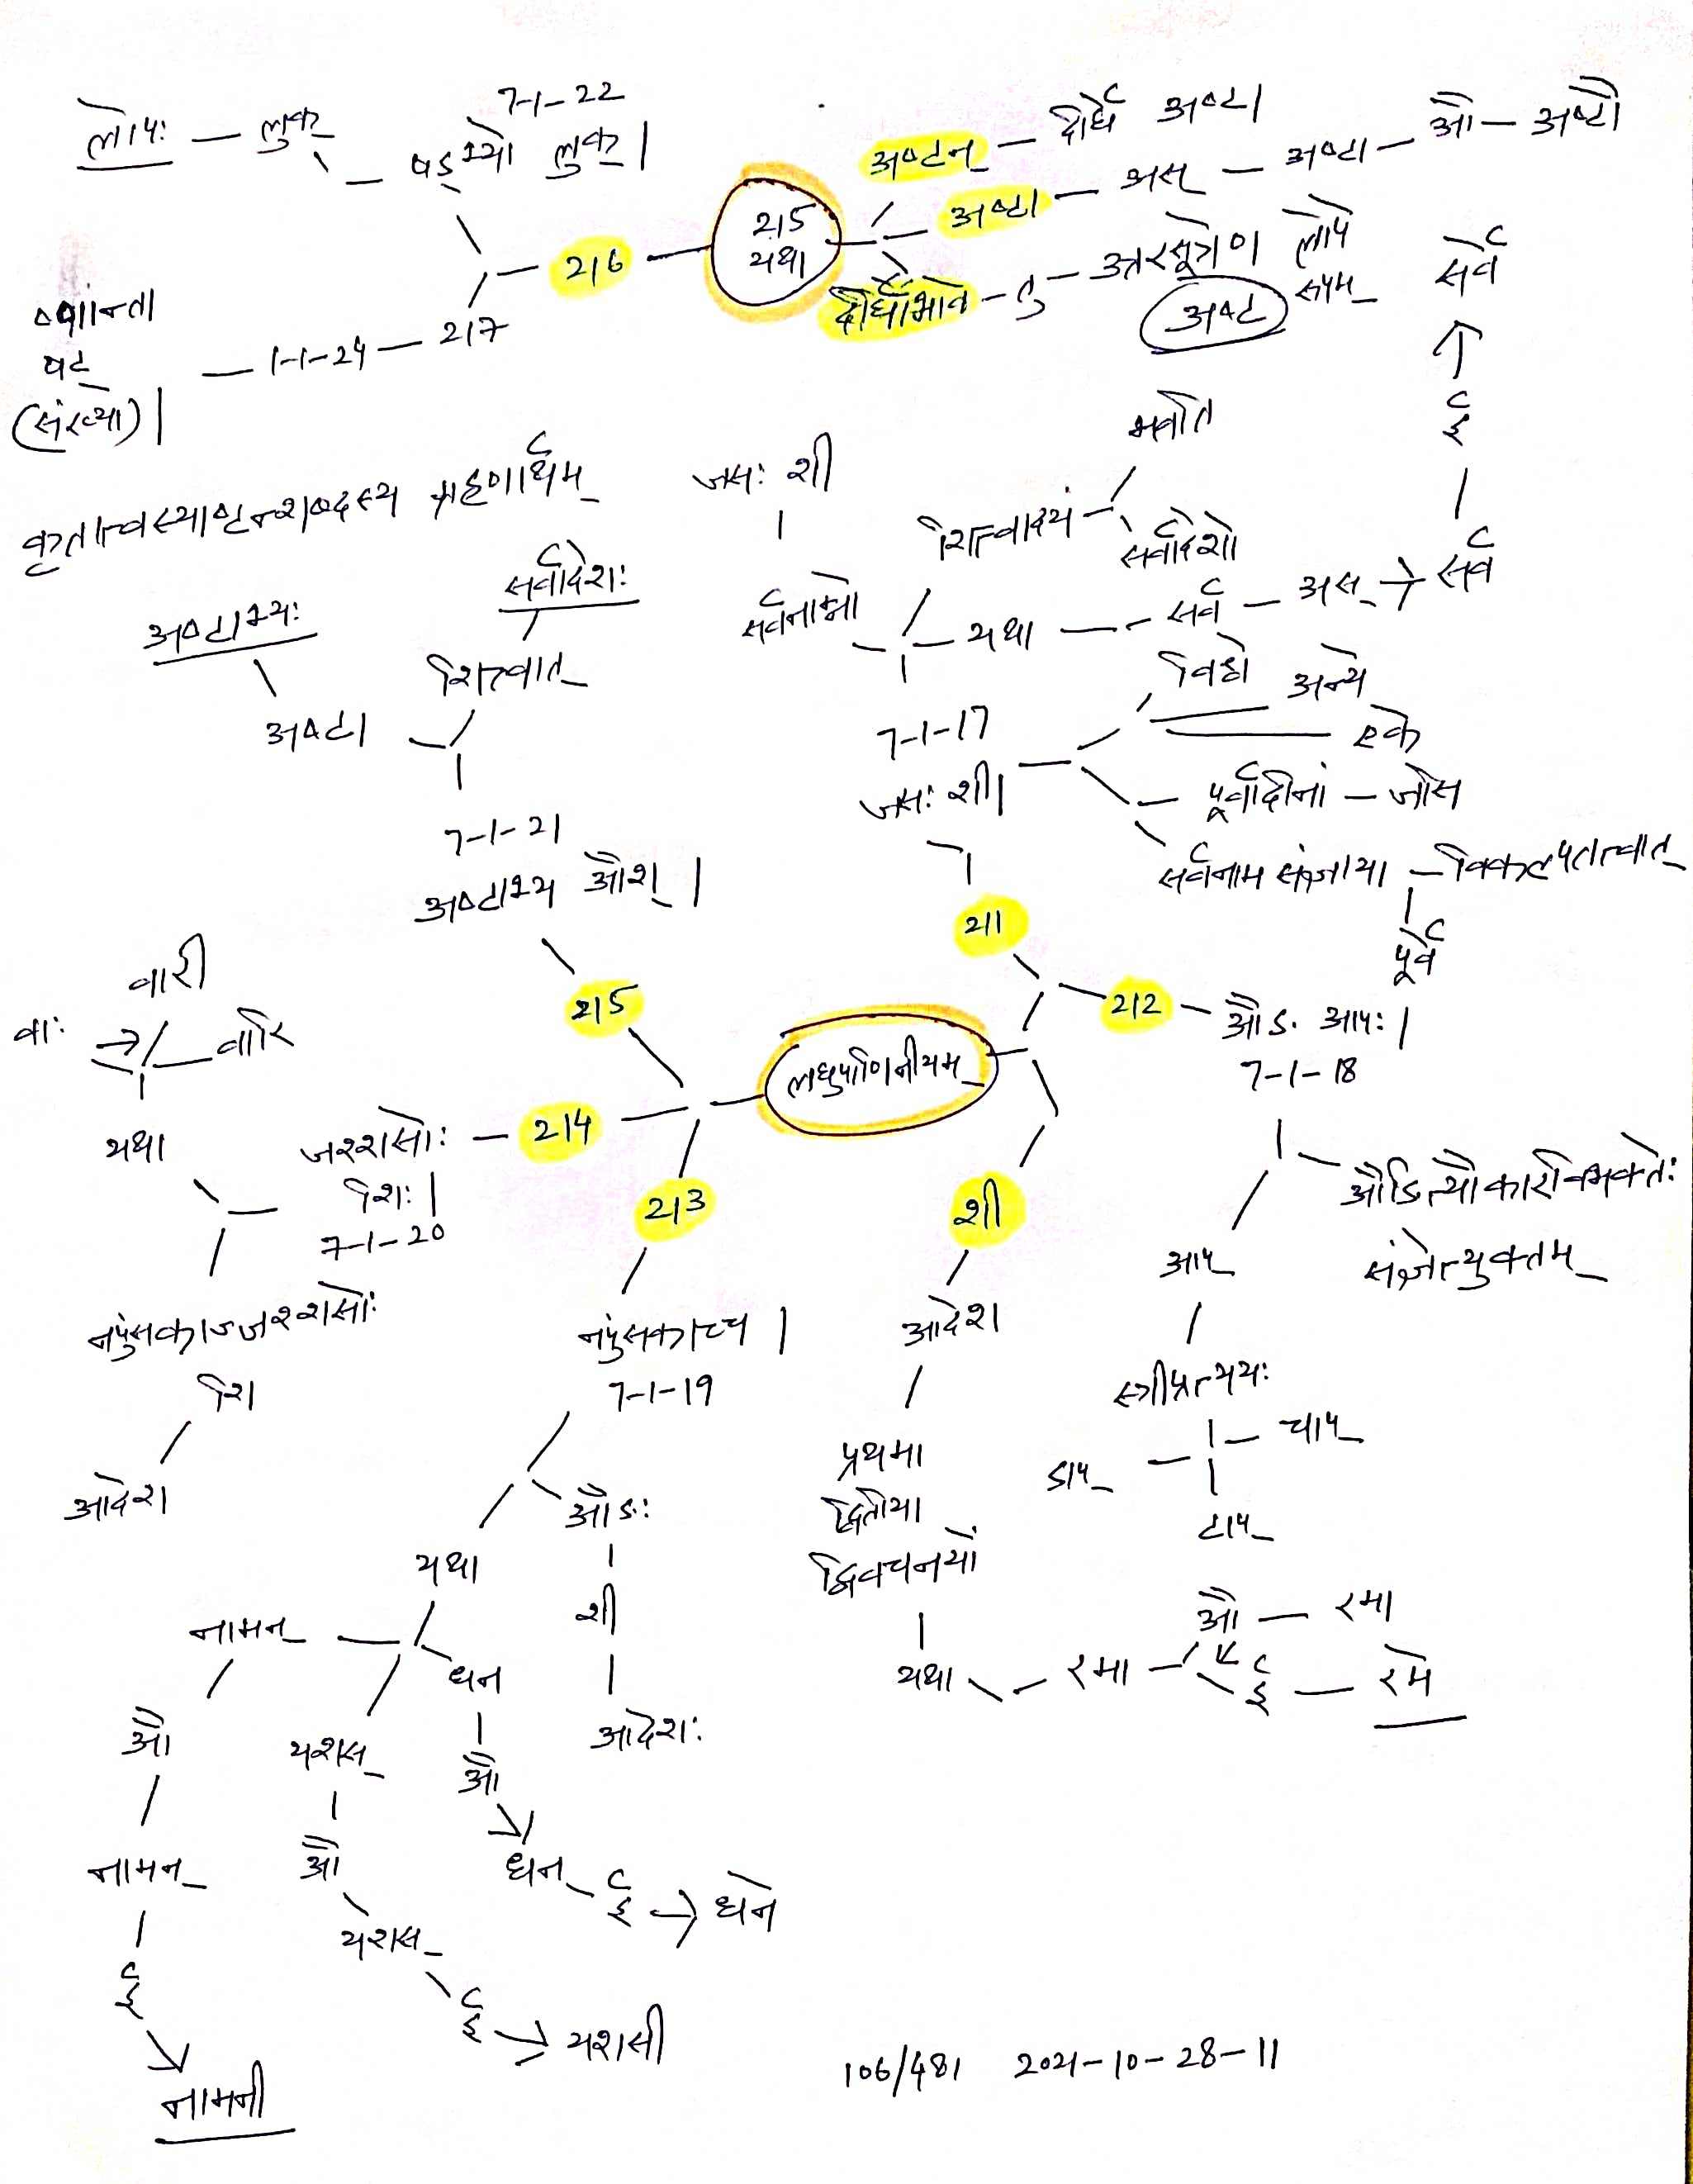 7-1-22
लोपः — लुक् — षड्भ्यो लुक् |
अष्टन् — दीर्घे अष्टा
अष्टा — अस् — अष्टा — औ — अष्टौ
215
यथा
216
दीर्घाभावे - तु - उत्तरसूत्रेण लोपे
अष्ट रूपम्
ष्णान्ता
षट्
(संख्या) |
1-1-24 — 217
सर्वे
ई
भवति
कृतात्वस्याष्टन्शब्दस्य ग्रहणार्थम्
जसः शी
शित्त्वादयं
सर्वादेशो
सर्वनाम्नो
यथा — सर्व — अस् → सर्व
सर्वादेशः
अष्टाभ्यः
शित्वात्
अष्टा
विश्वे
अन्ये
एके
7-1-17
जसः शी |
पूर्वादीनां — जसि
सर्वनाम संज्ञाया — विकल्पितत्वात्
पूर्वे
7-1-21
अष्टाभ्य औश् |
211
212 — औङ आपः |
7-1-18
215
वारी
वाः
वारि
लघुपाणिनीयम्
यथा
जश्शसोः — 214
शिः |
7-1-20
213
शी
औङित्यौकारविभक्तेः
संज्ञेत्युक्तम्
आप्
नपुंसकाज्जश्शसोः
शि
आदेश
नपुंसकाच्च |
7-1-19
आदेश
स्त्रीप्रत्ययः
चाप्
डाप्
टाप्
प्रथमा
द्वितीया
द्विवचनयो
औङः
शी
आदेशः
यथा
नामन्
धन
यथा — रमा
औ — रमा
ई — रमे
औ
यशस्
औ
नामन्
औ
धन ई → धने
यशस्
ई
ई → यशसी
नामनी
106/481 2021-10-28-11